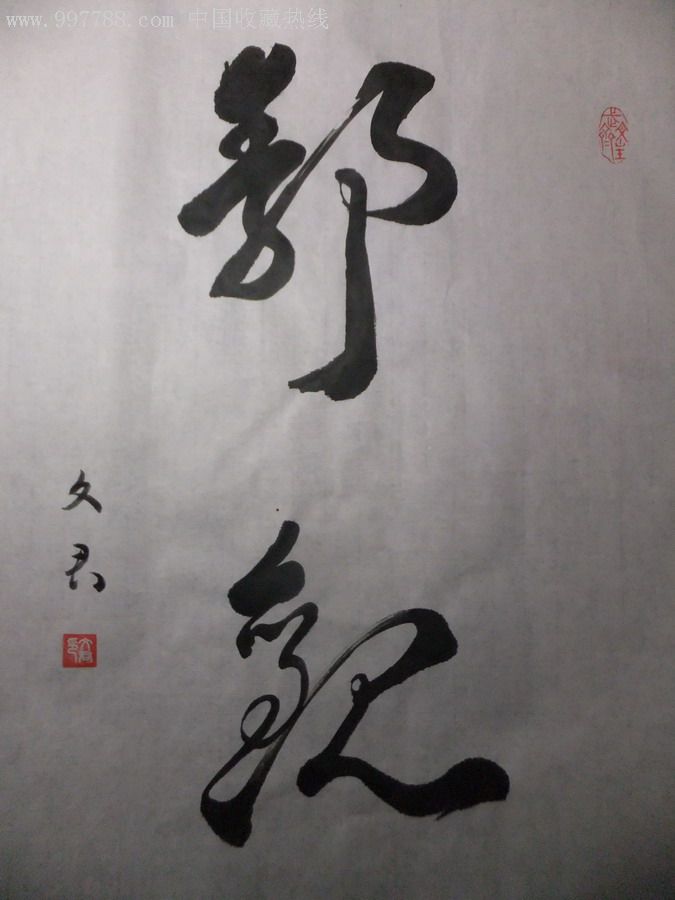 www.997788.com 中国收藏热线
靜觀
文君